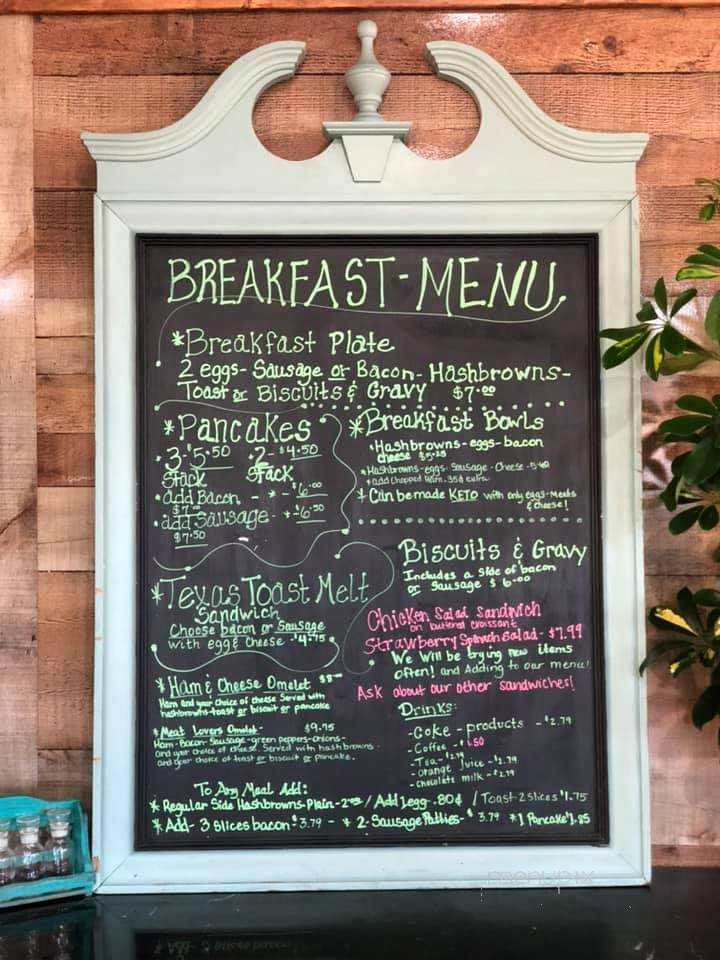 BREAKFAST-MENU
*Breakfast Plate
2 eggs-Sausage or Bacon-Hashbrowns-
Toast or Biscuits & Gravy $7.00
*Pancakes
3-$5.50 2-$4.50
Stack Stack
add Bacon - * - $6.00
$7.00
add Sausage - * $6.50
$7.50
*Breakfast Bowls
*Hashbrowns-eggs-bacon
cheese $5.25
*Hashbrowns-eggs-Sausage-Cheese-
*add Chopped Ham. 35¢ extra
*Can be made KETO with only eggs-Meats
& cheese!
Biscuits & Gravy
Includes a side of bacon
or Sausage $6.00
*Texas Toast Melt
Sandwich
Choose bacon or Sausage
with egg & Cheese $4.75
Chicken Salad Sandwich
on buttered croissant
Strawberry Spinach Salad-$7.99
We Will be trying new items
often! and Adding to our menu!
Ask about our other sandwiches!
*Ham & Cheese Omelet
Ham and your choice of cheese Served with
hashbrowns-toast or biscuit or pancake
*Meat Lovers Omelet- $9.75
Ham-Bacon-Sausage-green peppers-onions-
and your choice of cheese. Served with hashbrowns-
and your choice of toast or biscuit or pancake.
Drinks:
-Coke-products -$2.79
-Coffee -$1.50
-Tea-
-orange Juice-$2.79
-chocolate milk-$2.79
To Any Meal Add:
*Regular Side Hashbrowns-Plain- / Add 1 egg-.80¢ / Toast-2 Slices $1.75
*Add-3 slices bacon $3.79 - *2-Sausage Patties-$3.79 *1 Pancake $1.85
menupix